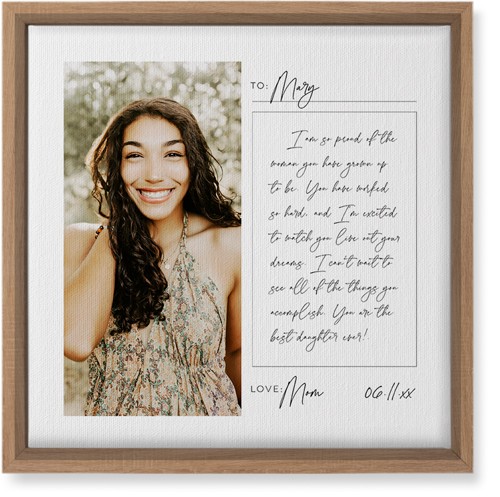 TO: Mary
I am so proud of the
woman you have grown up
to be. You have worked
so hard, and I'm excited
to watch you live out your
dreams. I can't wait to
see all of the things you
accomplish. You are the
best daughter ever!
LOVE: Mom 06.11.xx